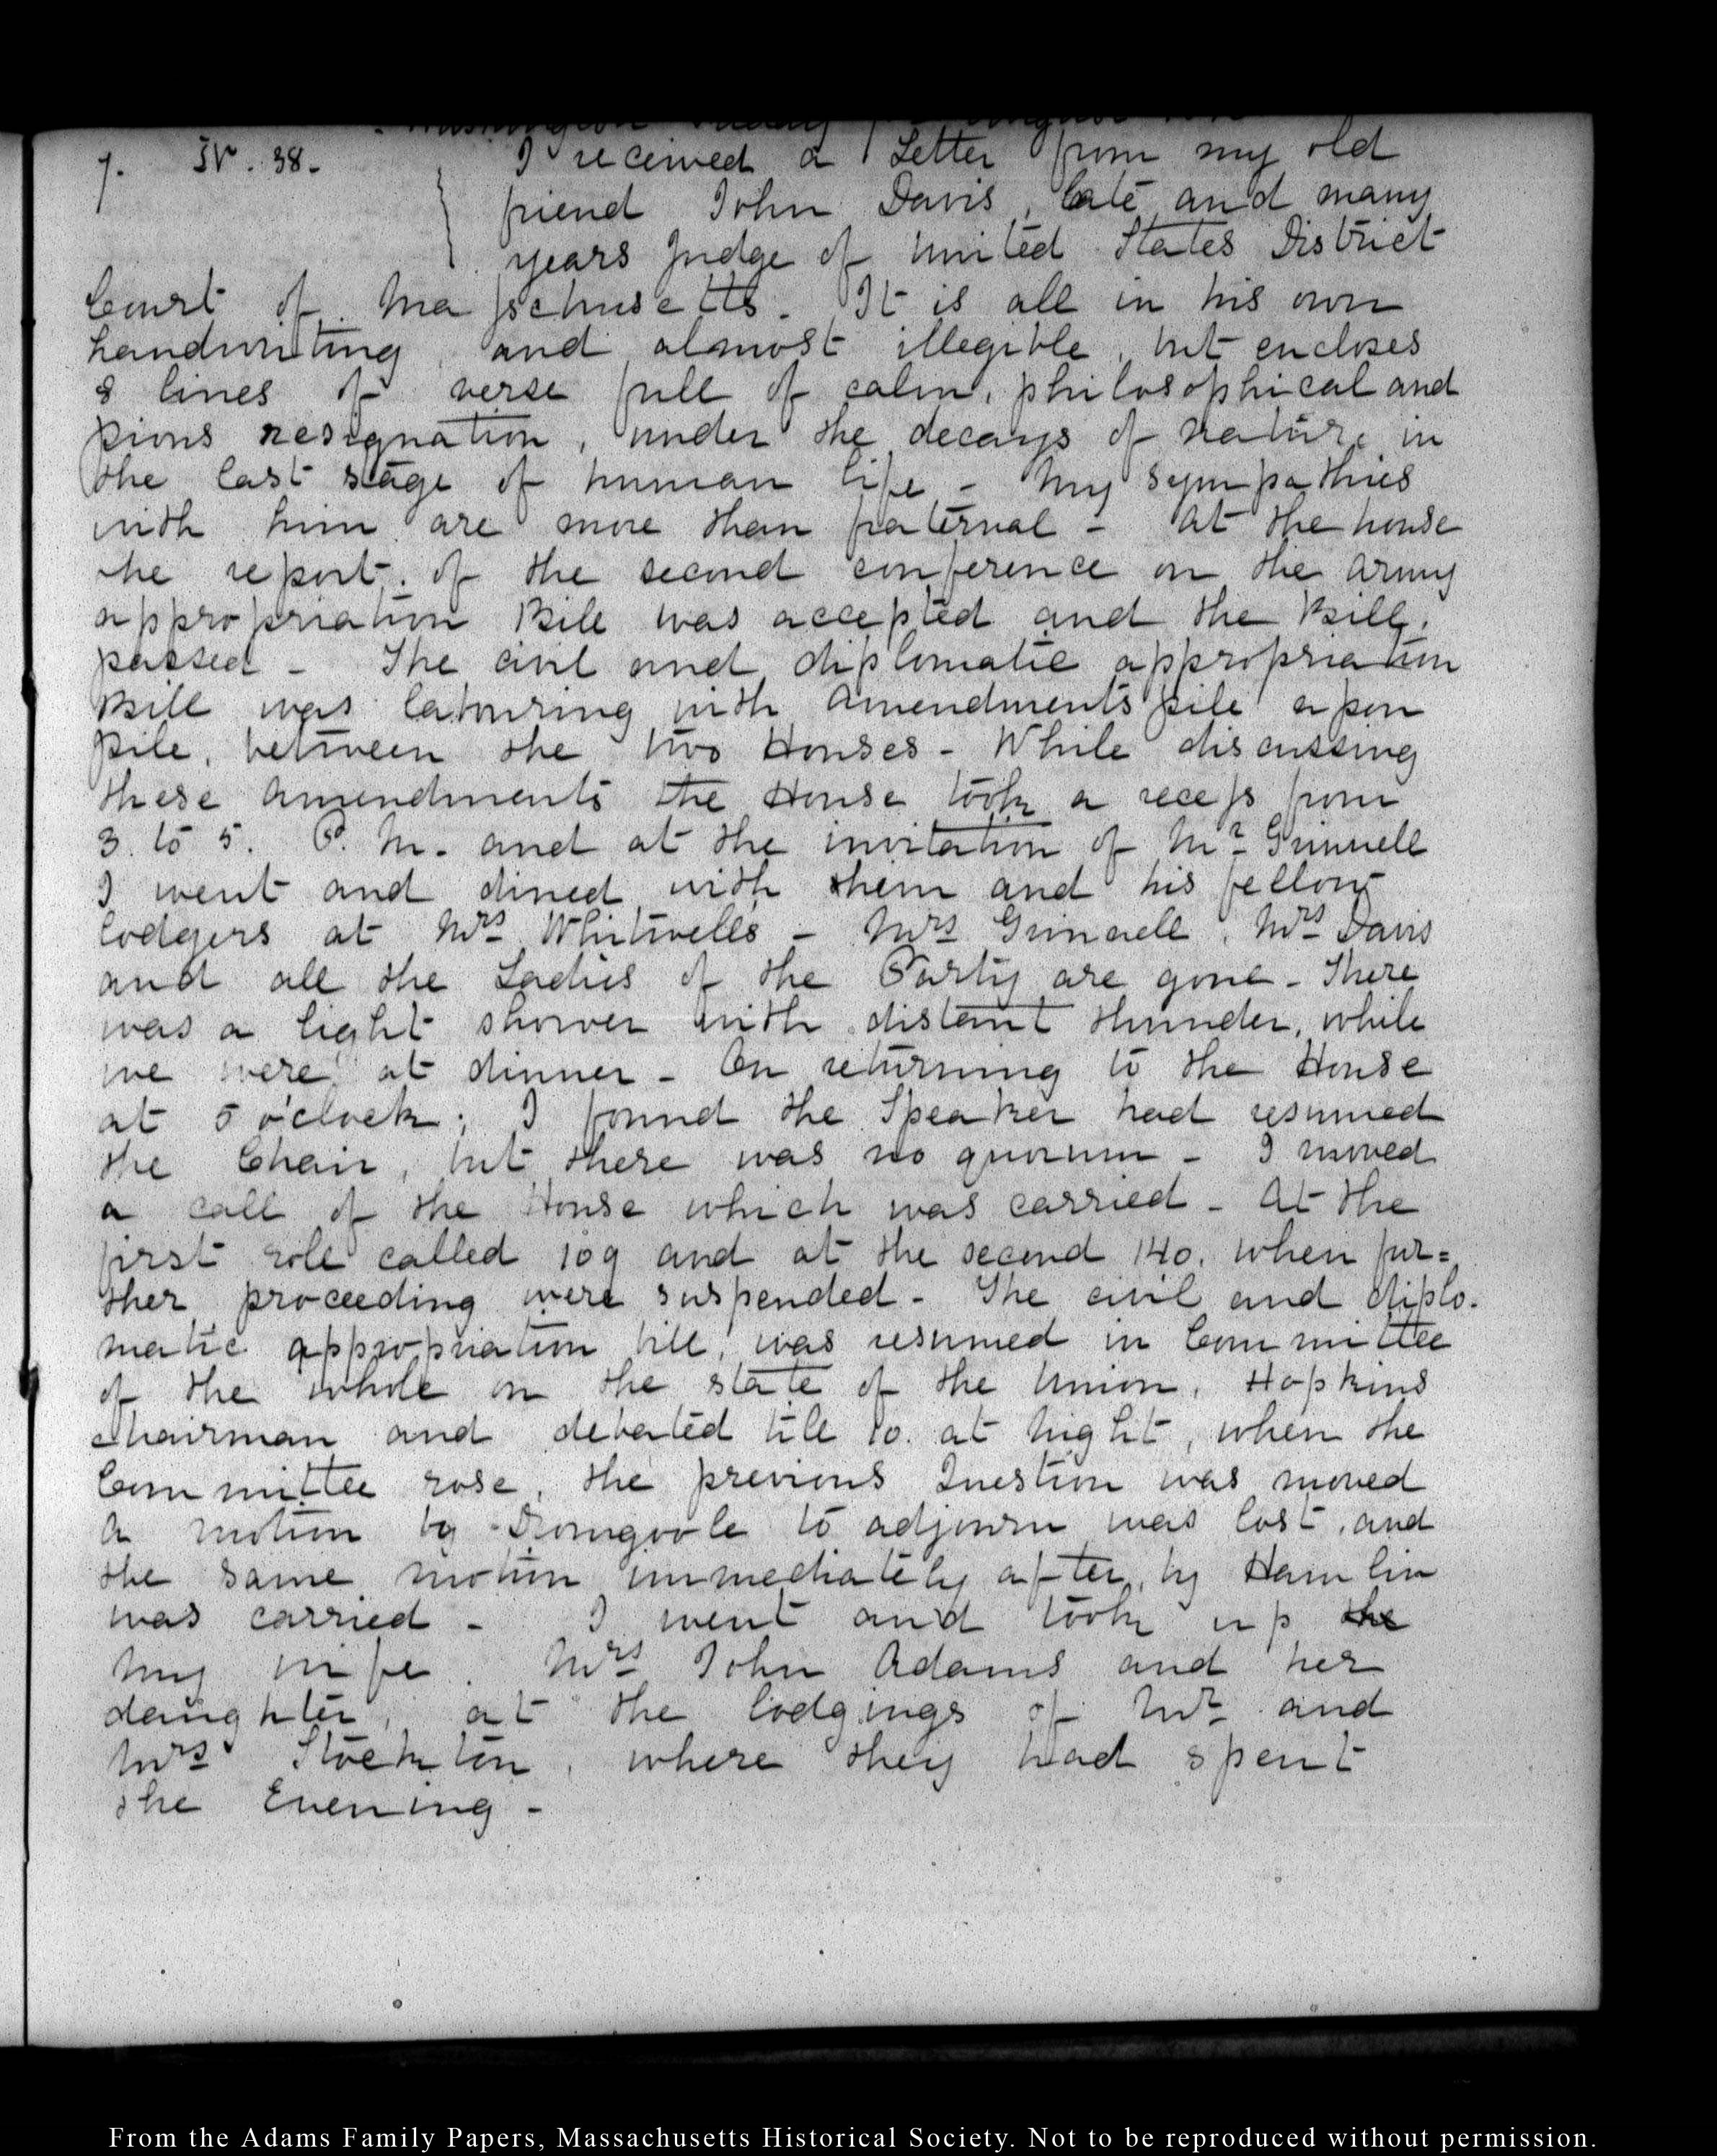 7. IV. 38. I received a Letter from my old
friend John Davis, late and many
years Judge of United States District
Court of Massachusetts. It is all in his own
handwriting, and almost illegible, but encloses
8 lines of verse full of calm, philosophical and
pious resignation, under the decays of nature in
the last stage of human life - My sympathies
with him are more than fraternal - At the house
the report of the second conference on the Army
appropriation Bill was accepted and the Bill,
passed - The civil and diplomatic appropriation
Bill was labouring with Amendments pile upon
pile, between the two Houses - While discussing
these Amendments the House took a recess from
3. to 5. P. M. and at the invitation of Mr. Grinnell
I went and dined with them and his fellow
lodgers at Mrs Whitwells - Mrs Grinnell, Mrs Davis
and all the Ladies of the Party are gone - There
was a light shower with distant thunder, while
we were at dinner - On returning to the House
at 5 o'clock; I found the Speaker had resumed
the Chair, but there was no quorum - I moved
a call of the House which was carried - At the
first role called 109 and at the second 140. when fur=
ther proceeding were suspended - The civil and diplo-
matic appropriation bill, was resumed in Committee
of the whole on the state of the Union, Hopkins
Chairman and debated till 10. at night, when the
Committee rose, the previous Question was moved
A motion by Dromgoole to adjourn was lost, and
the same motion immediately after, by Hamlin
was carried - I went and took up the
my wife. Mrs John Adams and her
daughter, at the lodgings of Mr and
Mrs Stockton, where they had spent
the Evening -
From the Adams Family Papers, Massachusetts Historical Society. Not to be reproduced without permission.